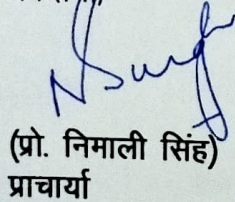 (प्रो. निमाली सिंह)
प्राचार्या